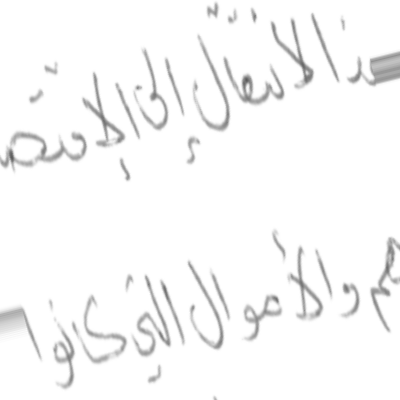 الانتقال إلى الإقتصا
والأموال التي كانوا